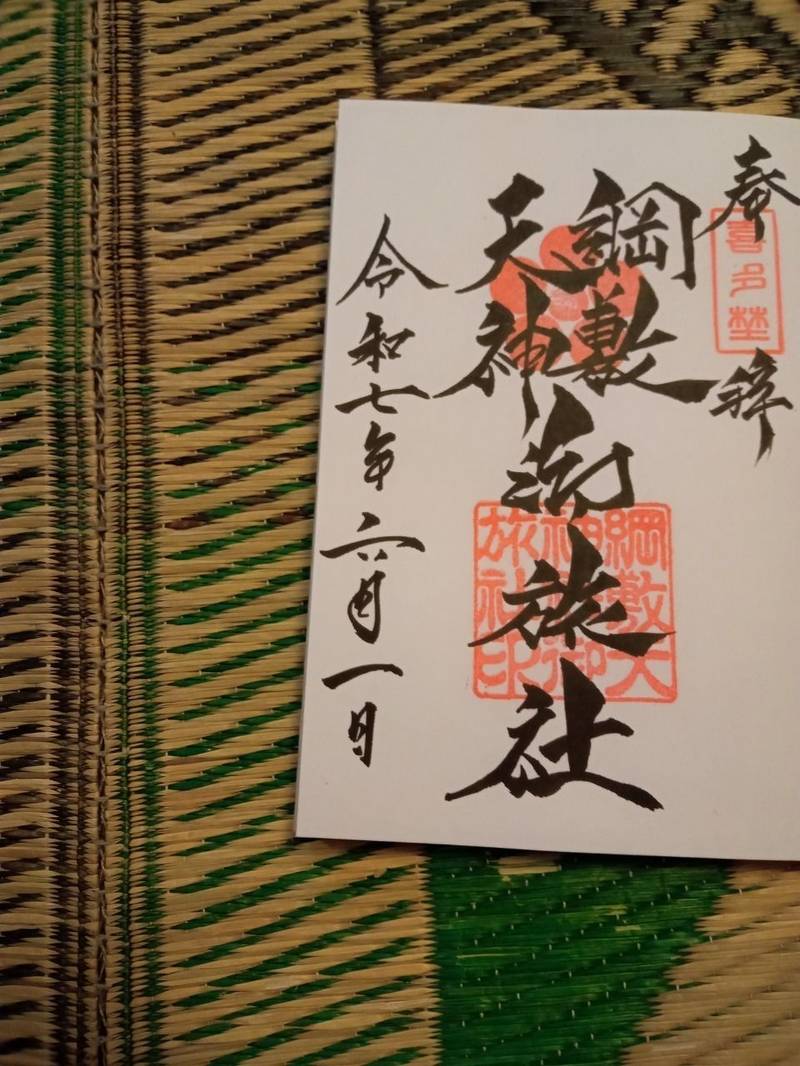 奉拝
喜多埜
綱敷
天神
御旅社
令和七年六月一日
綱敷天
神御
旅社印